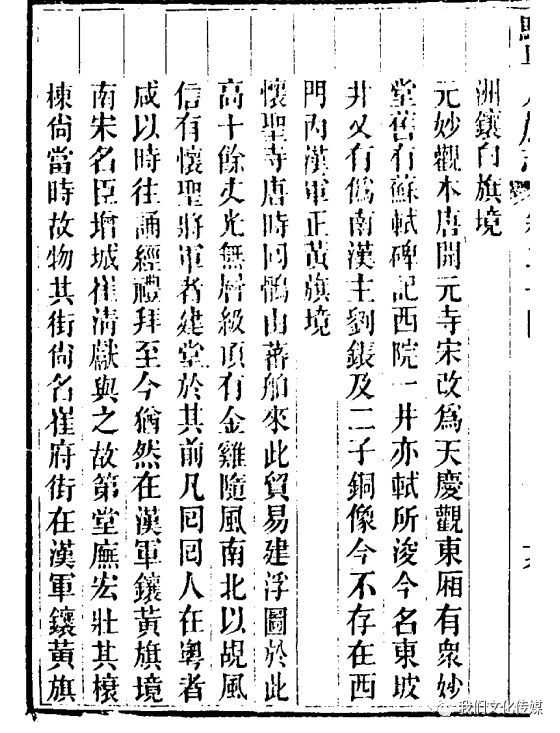 駐粵八旗志 卷二十四
洲鑲白旗境
元妙觀本唐開元寺宋改爲天慶觀東廂有衆妙
堂舊有蘇軾碑記西院一井亦軾所浚今名東坡
井又有僞南漢主劉鋹及二子銅像今不存在西
門內漢軍正黃旗境
懷聖寺唐時回鶻由蕃舶來此貿易建浮圖於此
高十餘丈光無層級頂有金雞隨風南北以覘風
信有懷聖將軍者建堂於其前凡囘囘人在粵者
咸以時往誦經禮拜至今猶然在漢軍鑲黃旗境
南宋名臣增城崔淸獻與之故第堂廡宏壯其榱
棟尙當時故物其街尙名崔府街在漢軍鑲黃旗
我们文化传媒